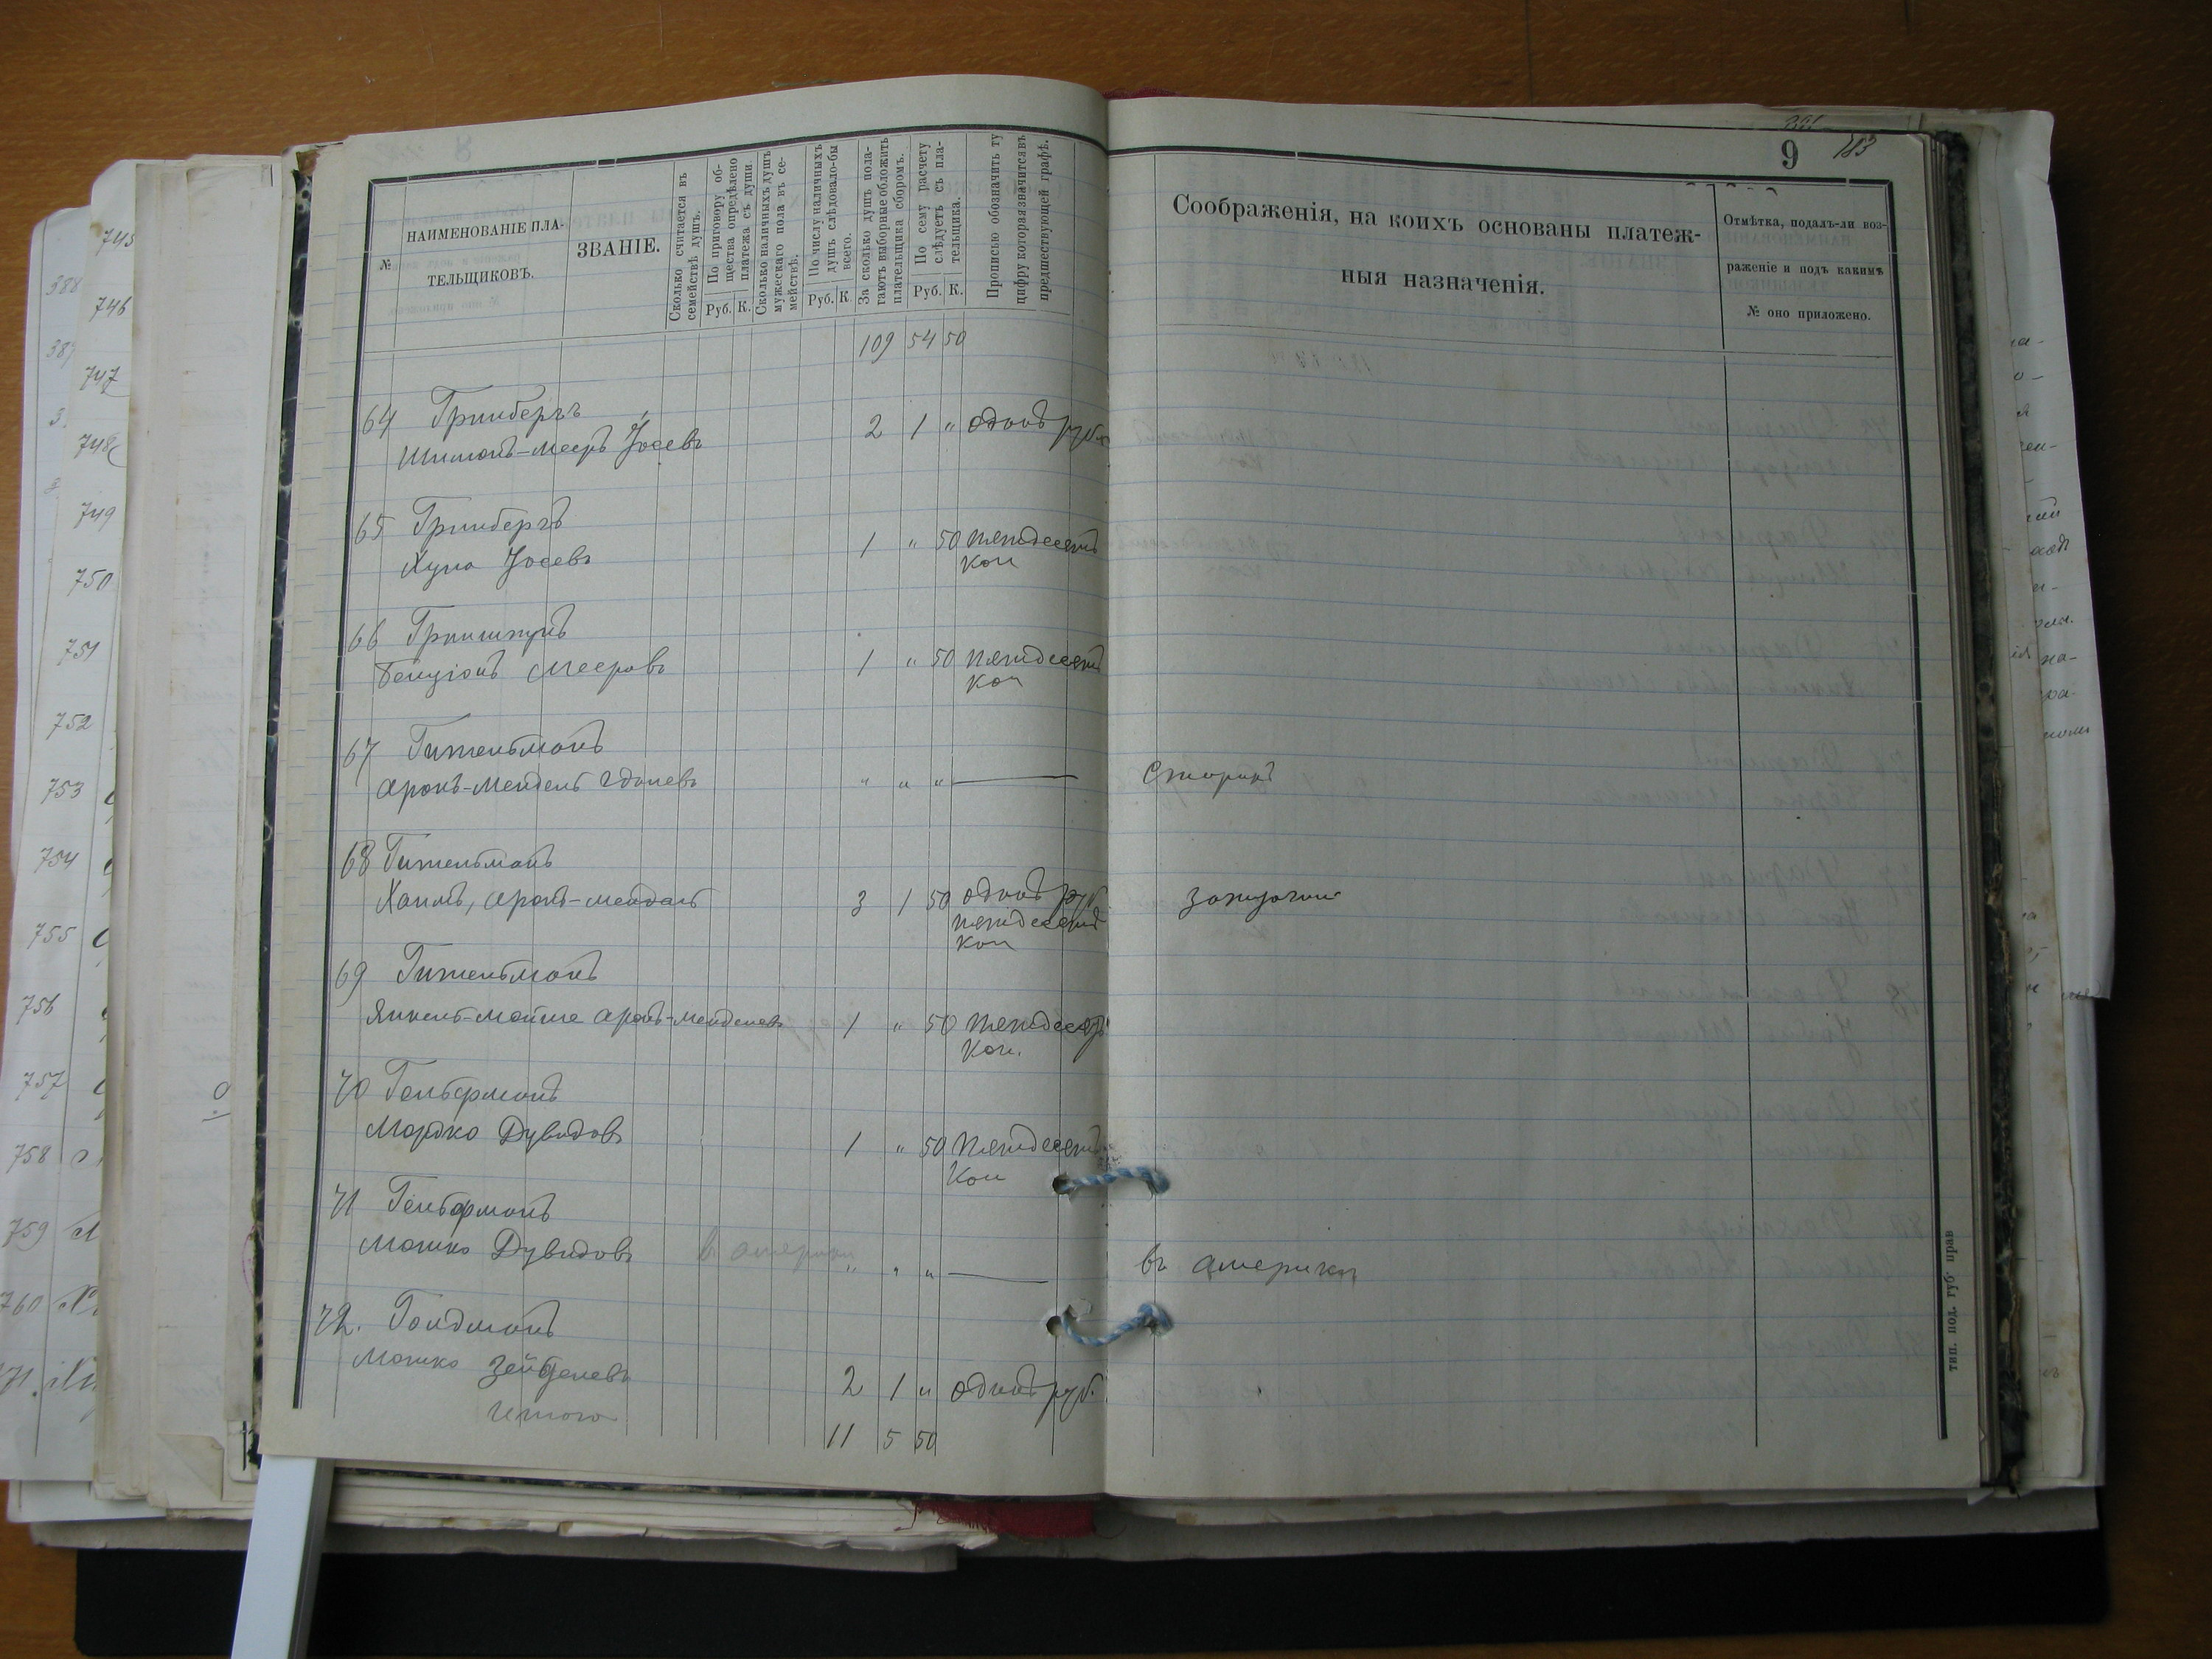 9
183
№
НАИМЕНОВАНІЕ ПЛА-
ТЕЛЬЩИКОВЪ.
ЗВАНІЕ.
Сколько считается въ
семействѣ душъ.
По приговору об-
щества опредѣлено
платежа съ души
Руб. К.
Сколько наличныхъ душъ
мужескаго пола въ се-
мействѣ.
По числу наличныхъ
душъ слѣдовало-бы
всего.
Руб. К.
За сколько душъ пола-
гаютъ выборные обложить
плательщика сборомъ.
По сему расчету
слѣдуетъ съ пла-
тельщика.
Руб. К.
Прописью обозначить ту
цифру которая значится въ
предшествующей графѣ.
Соображенія, на коихъ основаны платеж-
ныя назначенія.
Отмѣтка, подалъ-ли воз-
раженіе и подъ какимъ
№ оно приложено.
109 54 50
64 Гринбергъ
Шимонъ-Мееръ Іосевъ 2 1 " одинъ руб.
65 Гринбергъ
Хуна Іосевъ 1 " 50 пятдесятъ
коп
66 Гриншпунъ
Бенціонъ Мееровъ 1 " 50 пятдесятъ
коп
67 Гительманъ
Аронъ-Мендель " " " Старикъ
68 Гительманъ
Хаимъ, Аронъ-Мендель 3 1 50 одинъ руб.
пятдесятъ
коп
69 Гительманъ
Янкель-Мойше Аронъ-Менделевъ 1 " 50 пятдесятъ
коп.
70 Гельфманъ
Мордко Дувидовъ 1 " 50 пятдесятъ
коп
71 Гельфманъ
Мошко Дувидовъ въ америки " " " въ америки
72. Голдманъ
Мошко Зейделевъ 2 1 " одинъ руб.
Итого 11 5 50
тип. под. губ прав
745
746
747
748
749
750
751
752
753
754
755
756
757
758
759
760
388